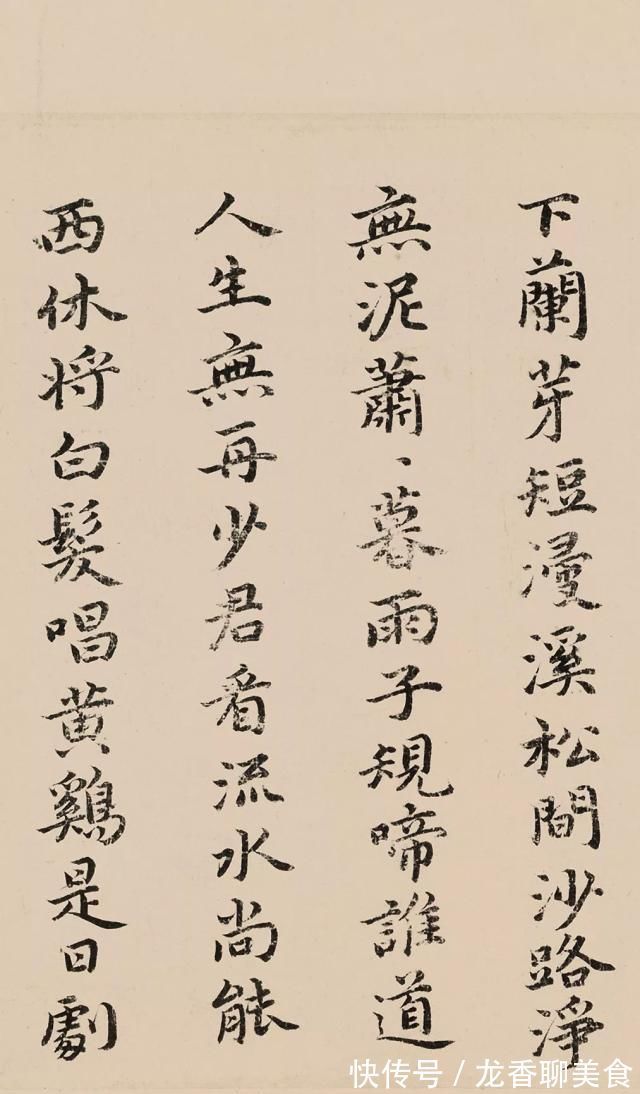 下蘭芽短漫溪松間沙路淨
無泥蕭〻暮雨子規啼誰道
人生無再少君看流水尚能
西休將白髮唱黃鷄是日劇
快传号/龙香聊美食